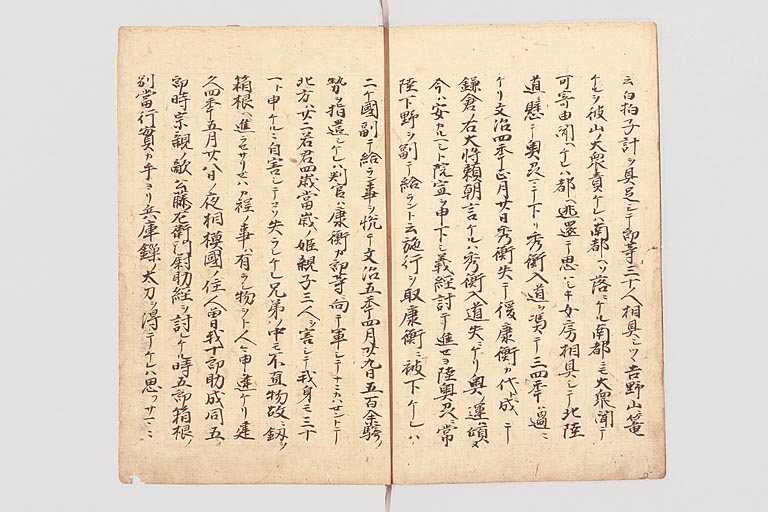 云白拍子計ヲ具足シテ郎等三十人相具シツヽ吉野山ニ篭
ケルヲ彼山ノ大衆責ケレハ南都ヘソ落ニケル南都ニモ大衆聞テ
可寄由聞ヘケレハ都ヘ逃還テ思ハシキ女房相具シテ北陸
道ニ懸テ奥州ニテ下リ秀衡入道ヲ憑テ三四年ヲ過ニ
ケリ文治四年正月廿日秀衡失テ後康衡カ代ト成テ
鎌倉ノ右大将頼朝言ケルハ秀衡入道失ケリ奥ノ運ノ傾ヌ
今ハ安カルヘシト院宣ヲ申下シ義経討テ進セヨ陸奥州ニ常
陸下野ヲ副テ給ラント云施行ヲ取康衡ニ被下ケレハ
二ケ國副テ給ラン事ヲ悦テ文治五年四月廿九日五百余騎ノ
勢ヲ指遣シケレハ判官ハ康衡カ郎等ニ向テ軍シテナニカハセントテ
北方ハ廿二若君四歳當歳ノ姫親子三人ヲ害シテ我身モ三十
一ト申ケルニ自害シテコソ失ラレケレ兄弟ノ中モ不直物故ニ釼ヲ
箱根ヘ進ラセサリセハカ程ノ事ハ有ラシ物ヲト人ニ申逢ケリ建
久四年五月廿八日ノ夜相模國ノ住人曽我十郎助成同五
郎時宗親ノ敵公藤左衛門尉助経ヲ討ケル時五郎箱根ノ
別當行實カ手ヨリ兵庫鏁ノ太刀ヲ得テケレハ思フサマニ